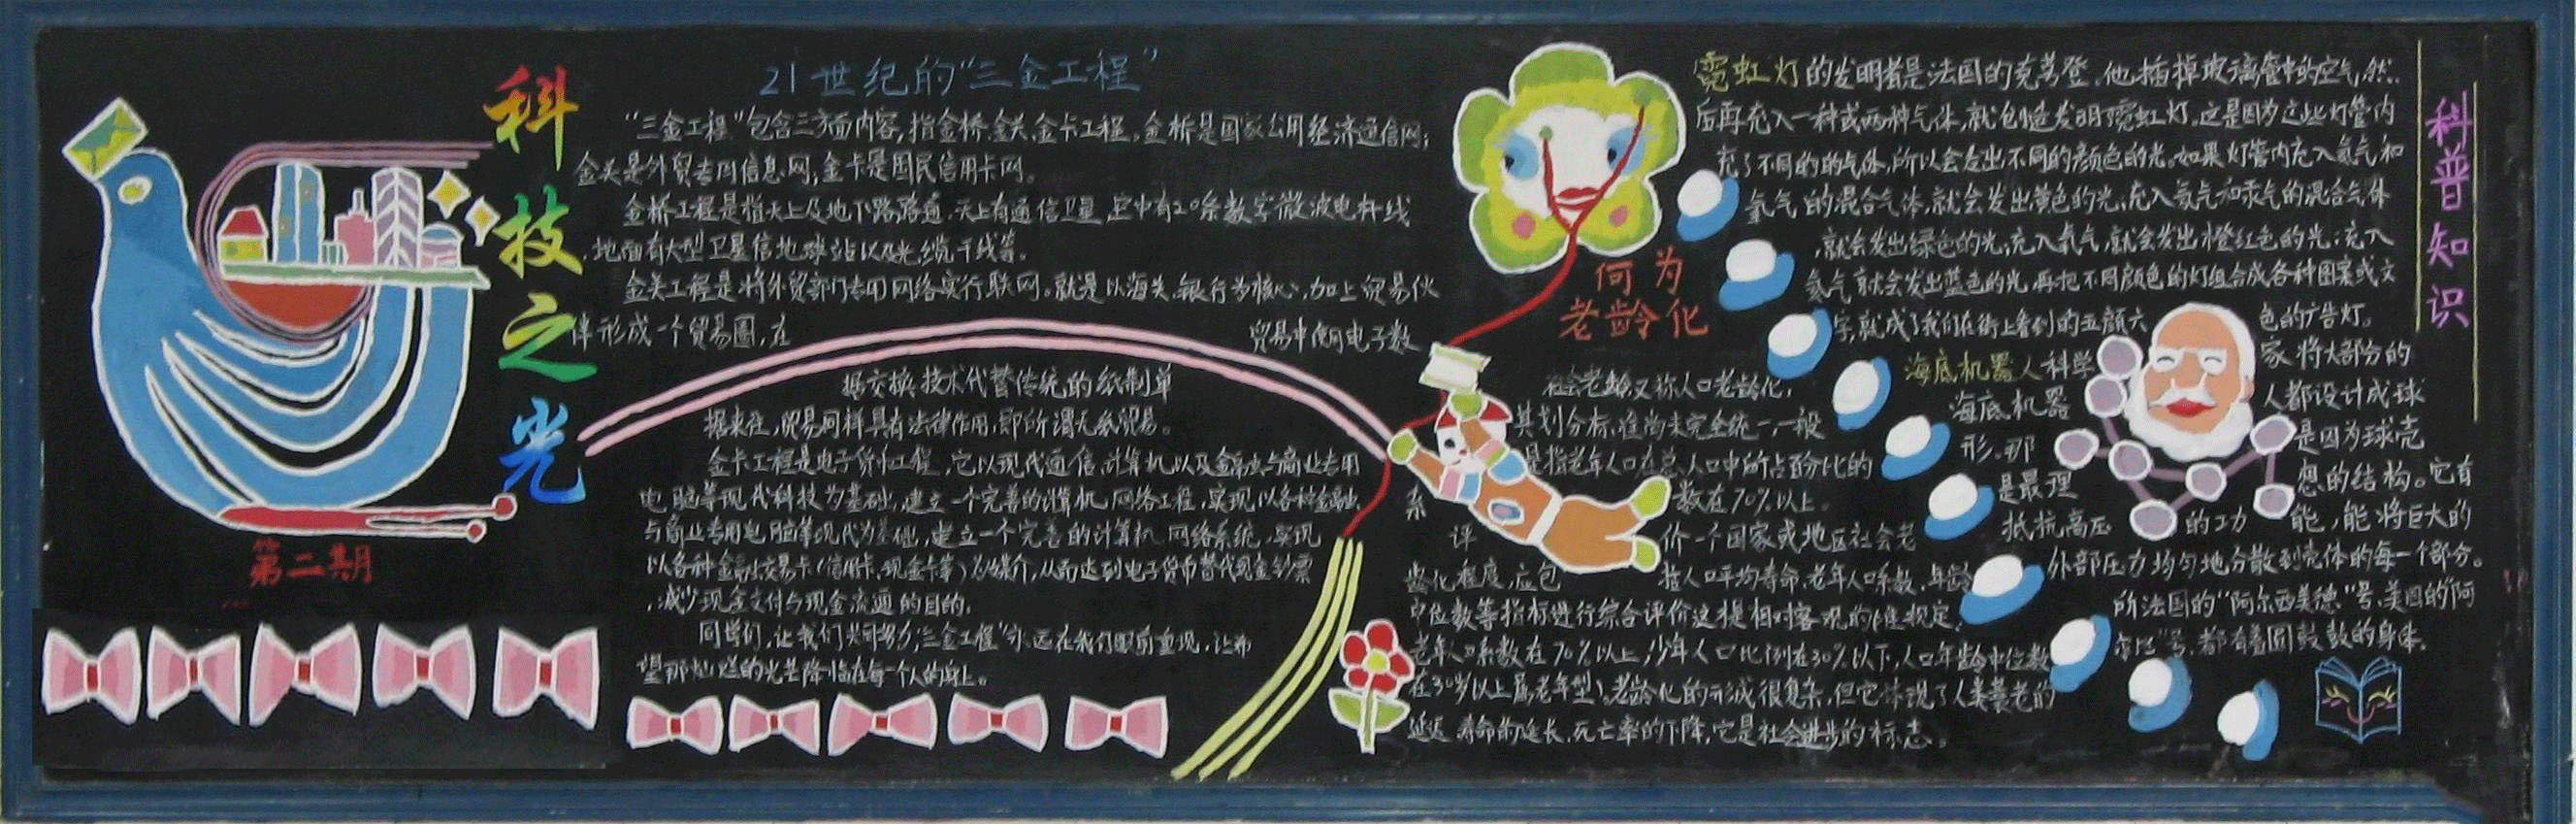 科技之光
第二期
21世纪的“三金工程”
“三金工程”包含三方面内容,指金桥、金关、金卡工程。金桥是国家公用经济通信网;
金关是外贸专用信息网,金卡是国民信用卡网。
金桥工程是指天上及地下路路通,天上有通信卫星,空中有20条数字微波电杆线
,地面有大型卫星信地球站以及光缆干线等。
金关工程是将外贸部门专用网络实行联网。就是以海关、银行为核心,加上贸易伙
伴形成一个贸易圈,在贸易中使用电子数
据交换技术代替传统的纸制单
据来往,贸易同样具有法律作用,即所谓无纸贸易。
金卡工程是电子货币工程,它以现代通信、计算机以及金融与商业专用
电脑等现代科技为基础,建立一个完善的计算机网络工程,实现以各种金融
与商业专用电脑等现代为基础,建立一个完善的计算机网络系统,实现
以各种金融交易卡(信用卡、现金卡等)为媒介,从而达到电子货币替代现金钞票
,减少现金支付与现金流通的目的。
同学们,让我们共同努力,“三金工程”永远在我们眼前重现,让希
望那灿烂的光芒降临在每一个人的身上。
何为
老龄化
社会老龄又称人口老龄化,
其划分标准尚未完全统一,一般
是指老年人口在总人口中所占百分比的
系数在70%以上。
评价一个国家或地区社会老
龄化程度,应包括人口平均寿命、老年人口系数、年龄
中位数等指标进行综合评价这提相对客观的性规定,
老年人口系数在70%以上,少年人口比例在30%以下,人口年龄中位数
在30岁以上属老年型,老龄化的形成很复杂,但它体现了人类衰老的
延迟 寿命的延长,死亡率的下降,它是社会进步的标志。
科普知识
霓虹灯的发明者是法国的克劳登,他插掉玻璃管中的空气,然
后再充入一种或两种气体,就创造发明了霓虹灯。这是因为这些灯管内
充了不同的的气体,所以会发出不同的颜色的光。如果灯管内充入氦气和
氩气的混合气体,就会发出黄色的光,充入氩气和汞气的混合气体
,就会发出绿色的光;充入氖气,就会发出橙红色的光;充入
氩气就会发出蓝色的光,再把不同颜色的灯组合成各种图案或文
字,就成了我们在街上看到的五颜六色的广告灯。
海底机器人科学家将大部分的
海底机器人都设计成球
形,那是因为球壳
是最理想的结构。它有
抵抗高压的功能,能将巨大的
外部压力均匀地分散到壳体的每一个部分。
所法国的“阿尔西美德”号,美国的“阿
号,都有着圆鼓鼓的身体。